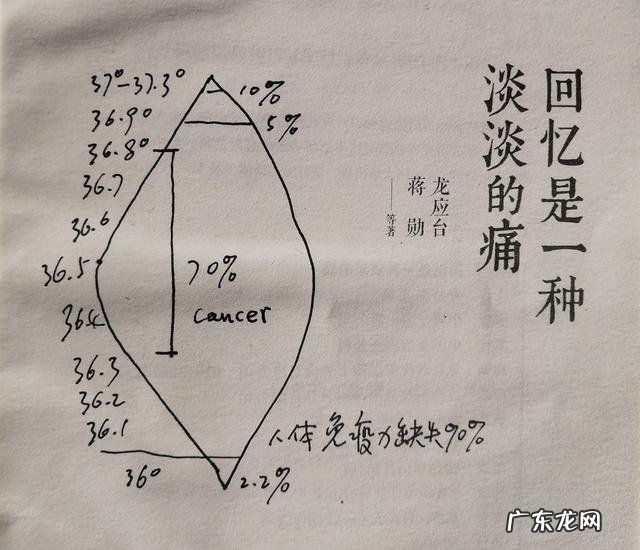 回忆是一种
淡淡的痛
龙应台
蒋 勋
——等著
37°-37.3°
10%
36.9°
5%
36.8°
36.7
36.6
36.5
70%
cancer
36.4
36.3
36.2
36.1
人体免疫力缺失90%
36°
2.2%
广东龙网